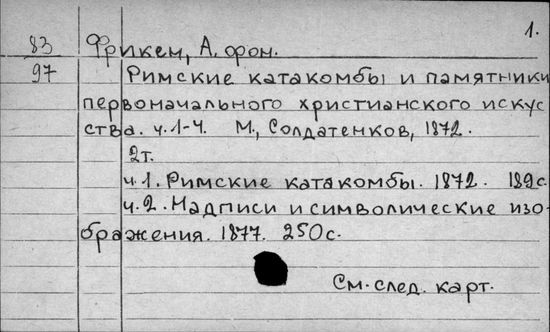 1.
83 Фрикем, А. фон.
97 Римские катакомбы и памятники
первоначального христианского искус
ства. ч.1-4. М., Солдатенков, 1872.
2т.
ч.1. Римские катакомбы. 1872. 189с.
ч.2. Надписи и символические изо-
бражения. 1877. 250с.
См. след. карт.